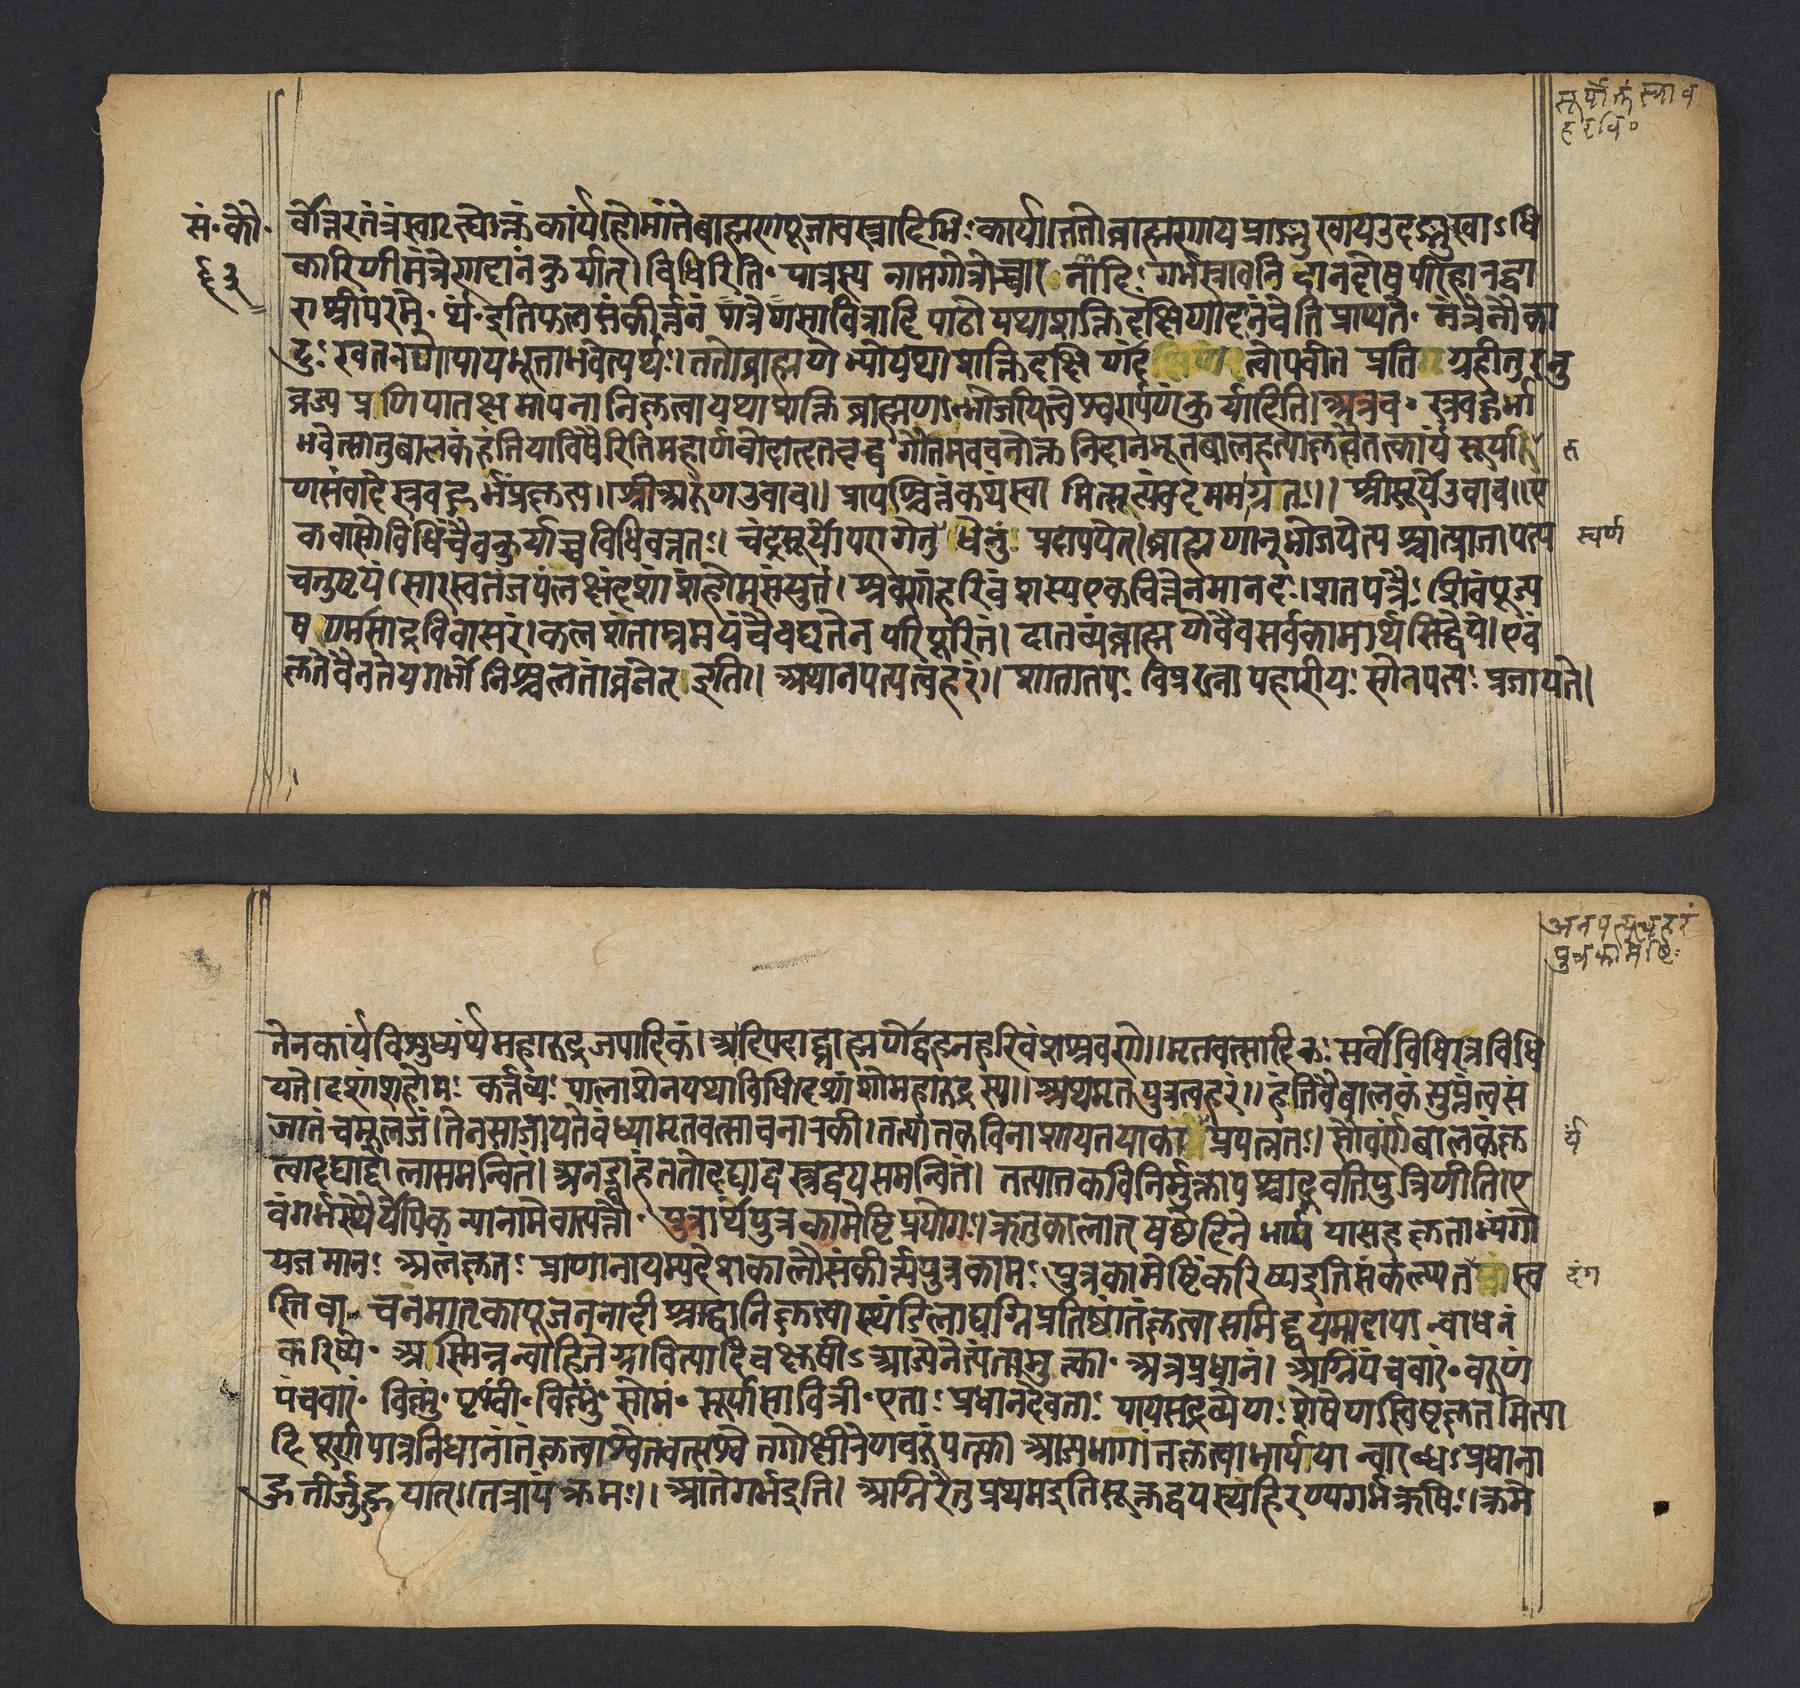 सूर्योक्तं स्त्राव
हरवि०
सं॰ कौ॰
६३
र्वोत्तरतंत्रं स्वगृह्योक्तं कार्यं होमांते ब्राह्मणपूजावस्त्रादिभिः कार्या। ततो ब्राह्मणाय प्राङ्मुखाय उदङ्मुखाऽधि
कारिणी मंत्रेण दानं कुर्यात्। विधिरिति॰ पात्रस्य नामगोत्रोच्चारणादिः गर्भस्त्रावनिदानदोषपरिहारद्वा
रा श्रीपरमे॰ र्थं॰ इति फलसंकीर्त्तनं पात्रेण सावित्र्यादि पाठो यथाशक्ति दक्षिणादानं चेति प्राप्यते॰ मंत्रेनौका
दुःखतरे भूत्ता भवेत्यर्थः। ततो ब्राह्मणेभ्यो यथाशक्ति दक्षिणां द त्वोपवीत प्रति ग्रहीतुरनु
व्रज्य प्रणिपातक्षमापनानि कृत्वा यथाशक्ति ब्राह्मणान्भोजयित्वेश्वरार्पणं कुर्यादिति। अत्रैव॰ स्त्रवद्गर्भा
भवेत्सा तु बालकं हंति या विषैरिति महार्णवोदाहृतवृद्धगौतमवचनोक्त निदानभूतबालहत्या कृतं चैतत्कार्यं सूर्यारु
त
णसंवादे स्त्रवद्गर्भं प्रकृत्य।। श्रीअरुण उवाच।। प्रायश्चित्तं कथं स्वामिन्ब्रूह्येवं दममग्रतः।। श्रीसूर्य उवाच।। ए
कवासो विधिं चैव कुर्याच्च विधिवत्ततः। चंद्रसूर्योपरागे तु धेनुं प्रदापयेत्। ब्राह्मणान् भोजयेत्पश्चात्प्राजापत्य
स्वर्ण
चतुष्टयं। सारस्वतं जपं लक्षं दशांशं होमसंयुतं। श्रवणं हरिवंशस्य एकचित्तेन मानदः। शतपत्रैः शिवं पूज्य
षण्मासाद्रविवासरं। कलशं ताम्रमयं चैव घृतेन परिपूरितं। दातव्यं ब्राह्मणे चैव सर्वकामार्थसिद्धये। एवं
कृते वैनतेय गर्भो निश्चलतां व्रजेत् इति।। अथानपत्यत्वहरं।। शातातपः विप्ररत्नापहारी यः सोनपत्यः प्रजायते।
अनपत्यत्वहरं
पुत्रकामेष्टिः
तेन कार्यं विशुध्यर्थं महारुद्रजपादिकं। अदिपदाद्ब्राह्मणोद्वहनहरिवंशश्रवणे।। मृतवत्सादिकः सर्वो विधिरत्र विधि
यते। दशांशहोमः कर्तव्यः पालाशेन यथाविधि। दशांशो महारुद्रस्य।। अथ मृतपुत्रत्वहरं।। हंति वै बालकं सुप्तं त्वसं
जातं च मूलजं। तेन सा जायते वंध्या मृतवत्सा च नारकी। तत्पातकविनाशाय तया का प्रयत्नतः। सौवर्णं बालकं कृ
र्यं
त्वा दद्याद्दोलासमन्वितं। अनड्वाहं ततो दद्याद्वस्त्रद्वयसमन्वितं। तत्पातकविनिर्मुक्ता पश्चाद्भवति पुत्रिणीति। ए
वं गर्भस्थैर्येपि कन्यानामेवोत्पत्तौ॰ पुत्रार्थं पुत्रकामेष्टिप्रयोगः। ऋतुकालात् षष्ठे दिने भार्यया सह कृताभ्यंगो
यजमानः अलंकृतः प्राणानायम्य देशकालौ संकीर्त्य पुत्रकामः पुत्रकामेष्टिं करिष्य इति संकल्प्य त स्व
दंग
स्तिवाचनमातृकापूजननांदीश्राद्धानि कृत्वा स्थंडिलाद्यग्निप्रतिष्ठांतं कृत्वा समिद्द्वयमादायान्वाधनं
करिष्ये॰ अस्मिन्नन्वाहितेग्नावित्यादि चक्षुषीऽआज्येनेत्यंतमुक्त्वा॰ अत्र प्रधानं। अग्निं पंचवारं॰ वरुणं
पंचवारं॰ विष्णुं॰ पृथ्वीं॰ विष्णुं॰ सोमं॰ सूर्यासावित्रीं॰ एताः प्रधानदेवताः पायसद्रव्येण शेषेण स्विष्टकृतमित्या
दि पूर्णपात्रनिधानांतं कृत्वा श्वेतवत्सश्वेतगोक्षीरेण चरुं पक्त्वा आज्यभागांतं कृत्वा भार्ययान्वारब्धः प्रधाना
हुतीर्जुहुयात्। तत्रायं क्रमः।। आतेगर्भ इति। अग्निरैतु प्रथम इति सूक्तद्वयस्य हिरण्यगर्भ ऋषिः। क्रमे